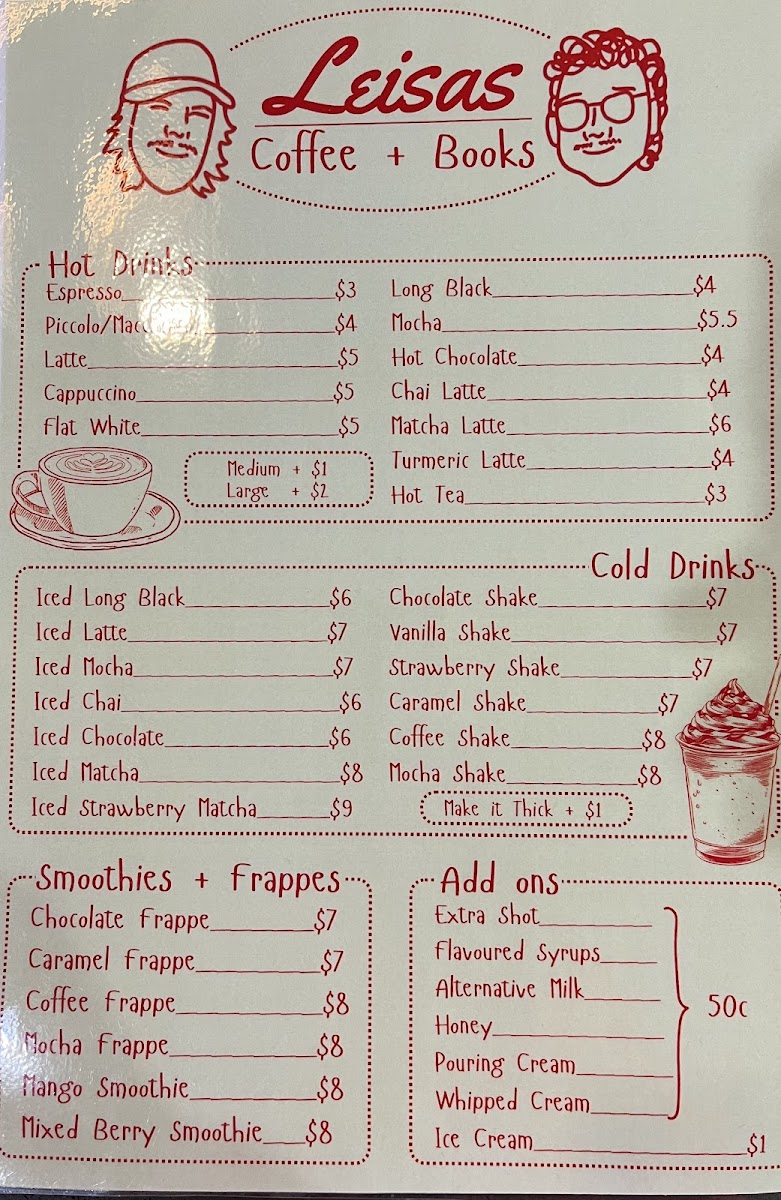 Leisas
Coffee + Books
Hot Drinks
Espresso $3
Piccolo/Macc $4
Latte $5
Cappuccino $5
Flat White $5
Medium + $1
Large + $2
Long Black $4
Mocha $5.5
Hot Chocolate $4
Chai Latte $4
Matcha Latte $6
Turmeric Latte $4
Hot Tea $3
Cold Drinks
Iced Long Black $6
Iced Latte $7
Iced Mocha $7
Iced Chai $6
Iced Chocolate $6
Iced Matcha $8
Iced Strawberry Matcha $9
Chocolate Shake $7
Vanilla Shake $7
Strawberry Shake $7
Caramel Shake $7
Coffee Shake $8
Mocha Shake $8
Make it Thick + $1
Smoothies + Frappes
Chocolate Frappe $7
Caramel Frappe $7
Coffee Frappe $8
Mocha Frappe $8
Mango Smoothie $8
Mixed Berry Smoothie $8
Add ons
Extra Shot
Flavoured Syrups
Alternative Milk
Honey
Pouring Cream
Whipped Cream
50c
Ice Cream $1